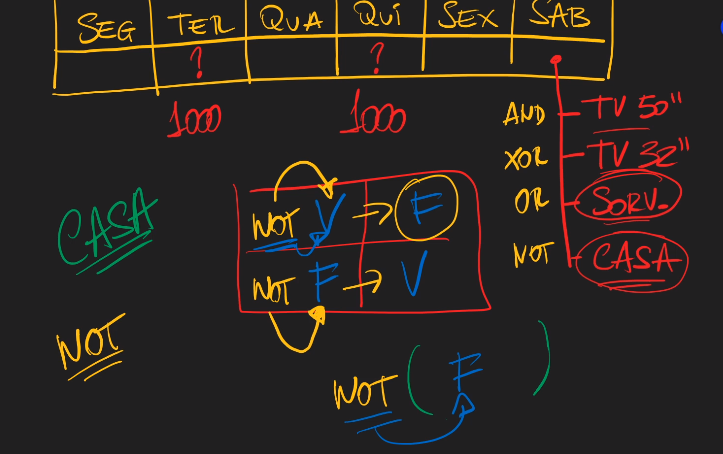 SEG TER QUA QUI SEX SAB
? ?
1000 1000
AND TV 50"
XOR TV 32"
OR SORV.
NOT CASA
CASA
NOT V → F
NOT F → V
NOT
NOT ( F )